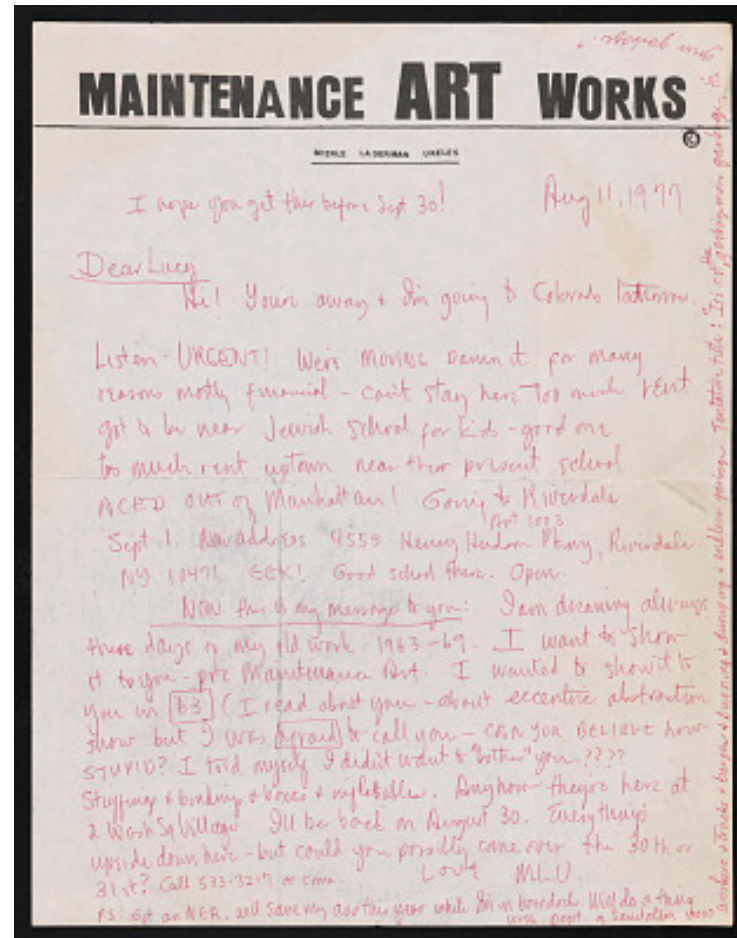 MAINTENANCE ART WORKS
©
MIERLE LADERMAN UKELES
I hope you get this before Sept 30!
Aug 11, 1977
Dear Lucy
Hi! You're away + I'm going to Colorado tomorrow.
Listen - URGENT! We're MOVING Damn it for many
reasons mostly financial - can't stay here Too much rent
got to be near Jewish School for kids - good one
too much rent uptown near their present school
ACED OUT of Manhattan! Going to Riverdale
Apt 1003
Sept 1. New address 4555 Henry Hudson Pkwy, Riverdale
NY 10471 EEK! Good school there. Open.
Now this is my message to you: I am dreaming always
these days of my old work - 1963-69. I want to show
it to you - pre Maintenance Art. I wanted to show it to
you in 63 (I read about you - about eccentric abstraction
show but I was afraid to call you - CAN YOU BELIEVE how
STUPID? I told myself I didn't want to "bother" you. ????
Stuffings + bindings + boxes + inflatables. Anyhow they're here at
2 Wash Sq Village I'll be back on August 30. Everything's
upside down here - but could you possibly come over the 30th or
31st? Call 533-3217 or come. Love MLU
PS. Got an NEA, will save my ass this year while I'm in boondock. Will do a thing
with Dept. of Sanitation
+ Trucks + barges + burning + dumping + endless garbage. Tentative title: "It's not the garbageman's garbage, it
is your garbage."